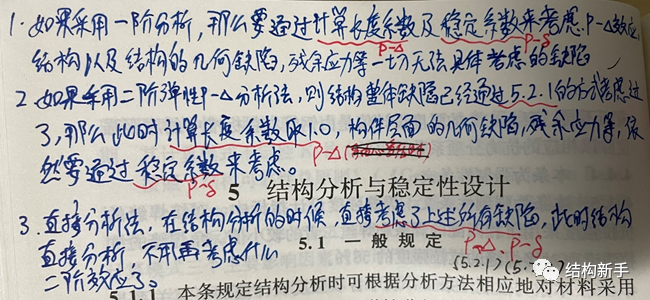 1.如果采用一阶分析,那么要通过计算长度系数及稳定系数来考虑P-Δ效应,
P-Δ P-δ
结构以及结构的几何缺陷,残余应力等一切无法具体考虑的缺陷
2 如果采用二阶弹性P-Δ分析法,则结构整体缺陷已经通过5.2.1的方式考虑过
了,那么此时计算长度系数取1.0,构件层面的几何缺陷,残余应力等,依
P-Δ
然要通过稳定系数来考虑。
P-δ
5 结构分析与稳定性设计
3.直接分析法,在结构分析的时候,直接考虑了上述所有缺陷,此时结构
5.1 一般规定
P-Δ、P-δ
直接分析,不用再考虑什么
(5.2.1)(5.2.2)
二阶效应了。
结构新手
5.1.1 本条规定结构分析时可根据分析方法相应地对材料采用